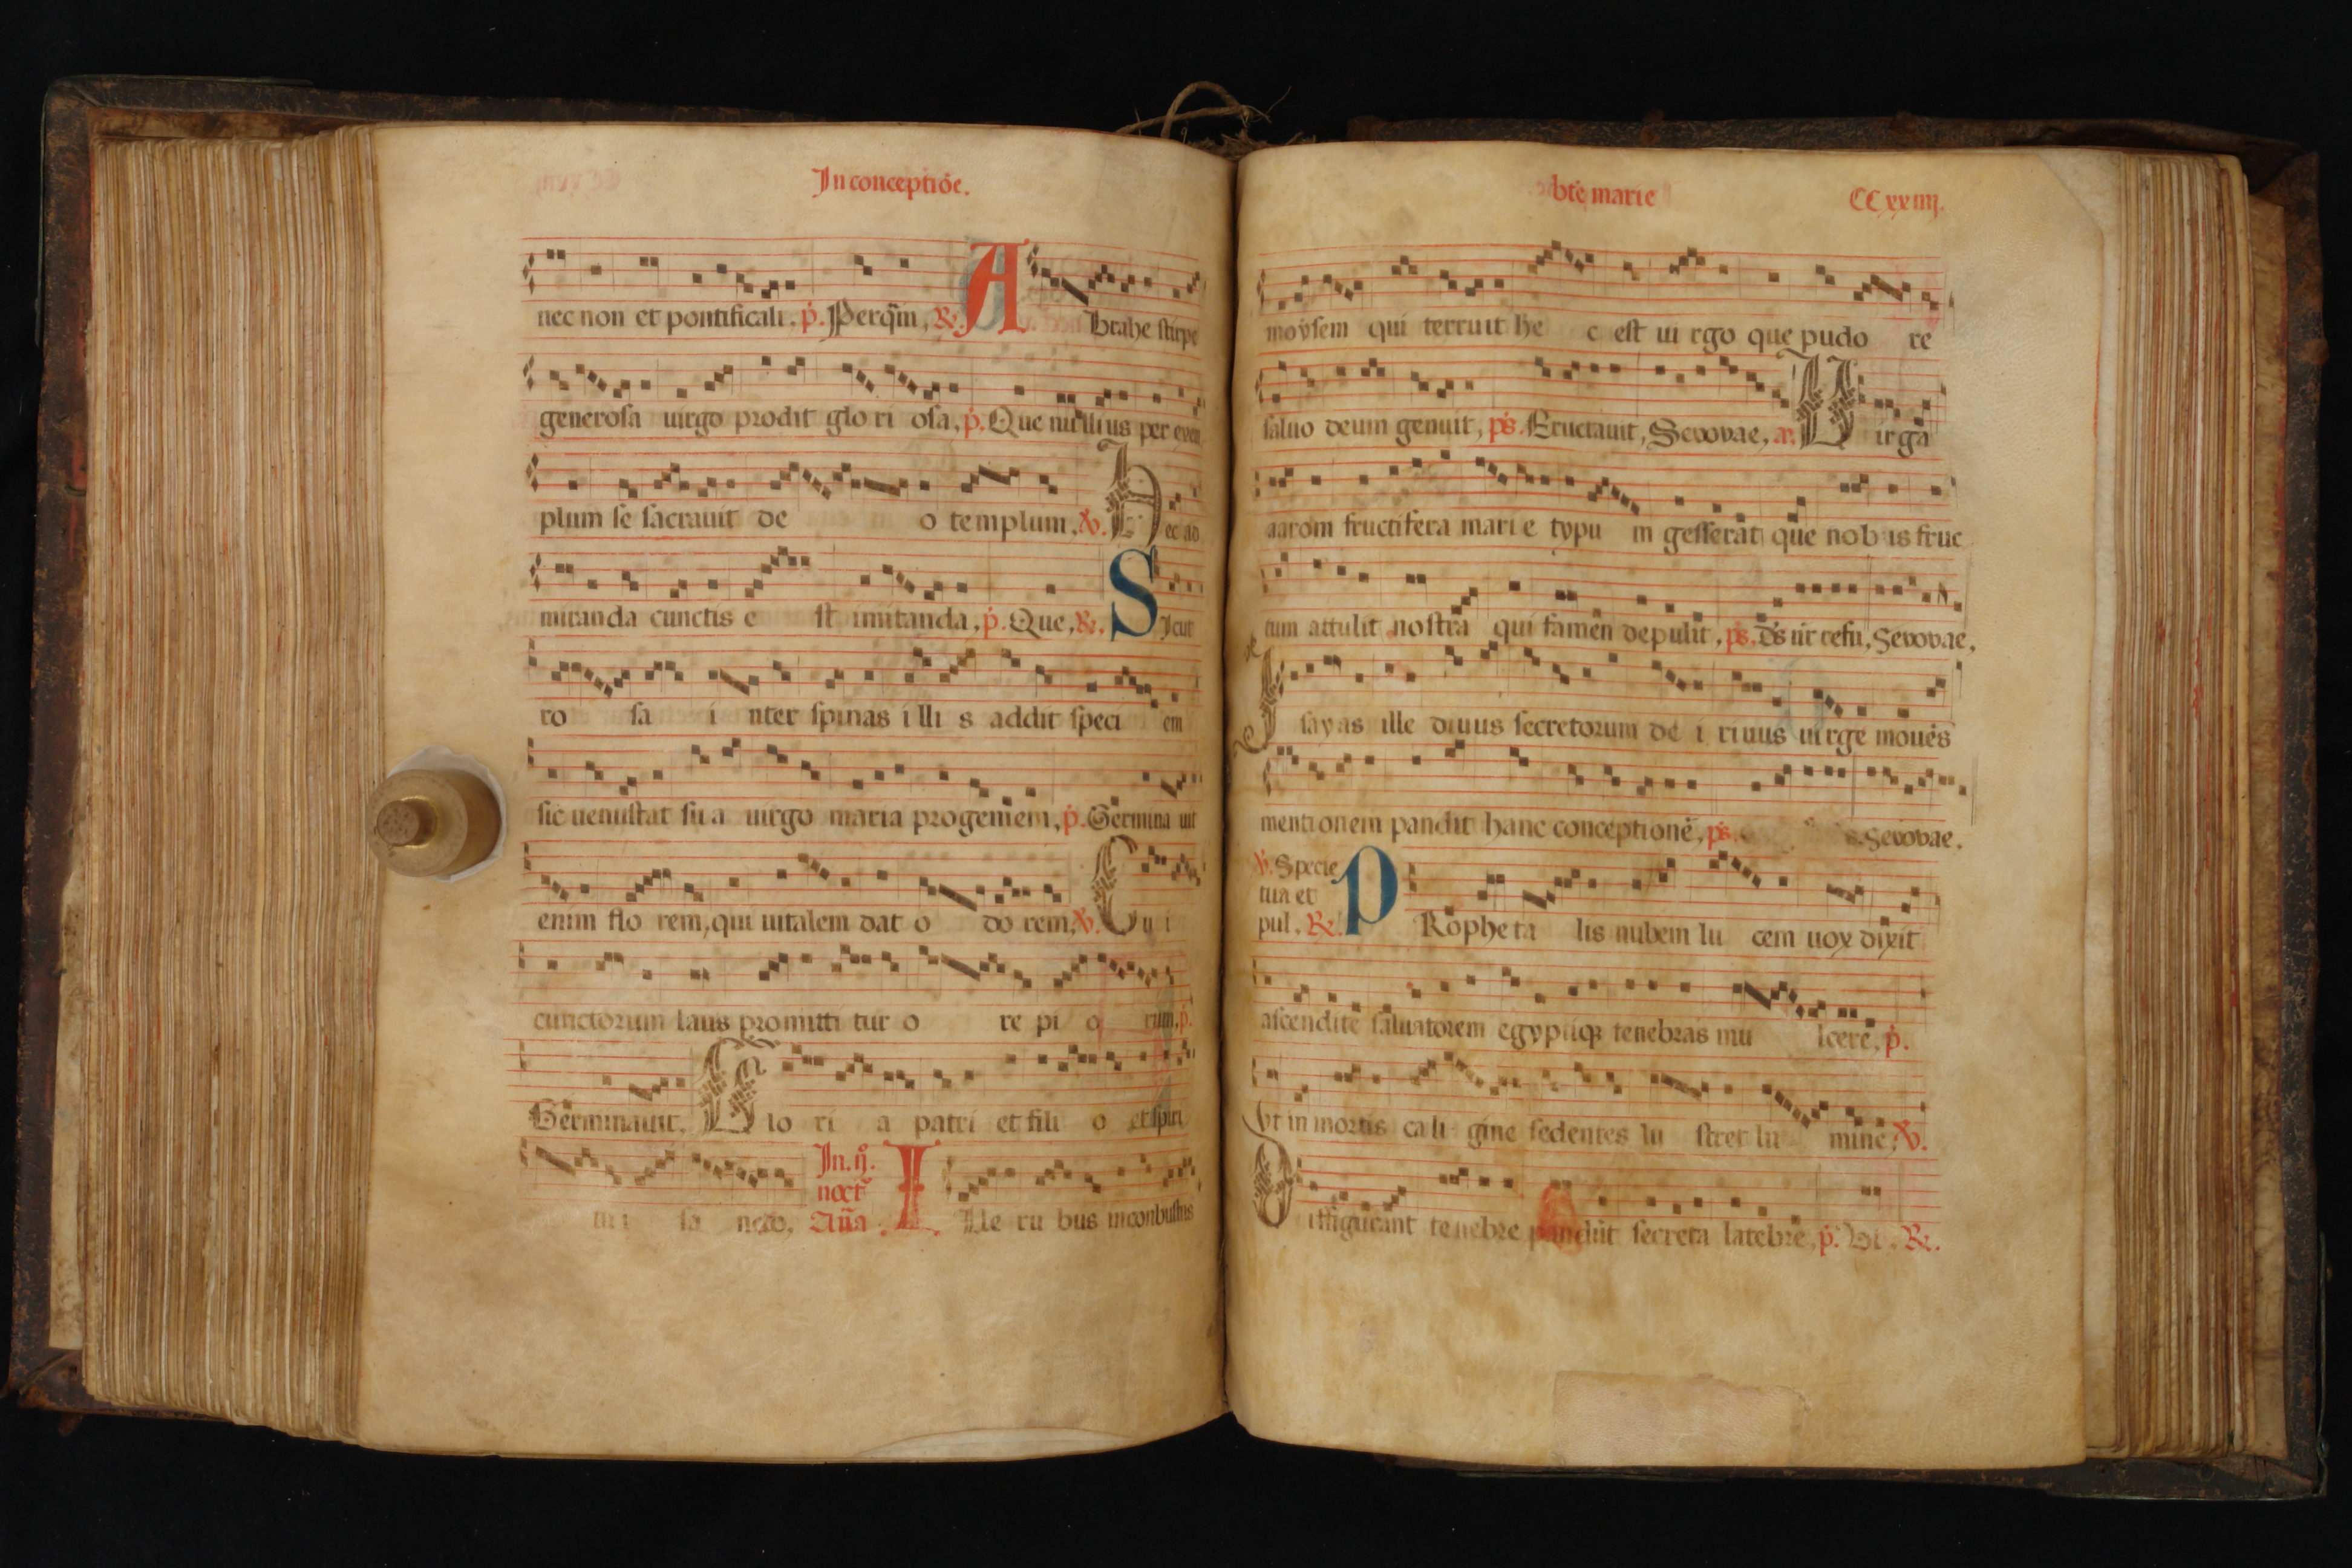 In conceptiōe.
nec non et pontificali. p̄. Per q̄m, R. A Brahe stirpe
generosa uirgo prodit glo ri osa, p̄. Que nullius per exem
plum se sacrauit de o templum, V. H ec ad
miranda cunctis e st imitanda, p̄. Que, R. S Icut
ro sa i nter spinas illi s addit speci em
sic uenustat su a uirgo maria progeniem, p̄. Germina uit
enim flo rem, qui uitalem dat o do rem, V. C u i
cunctorum laus promitti tur o re pi o rum, p̄.
Germinauit, G lo ri a patri et fili o et spiri
tu i sa ncto,
In. ij.
noct
Aña I
lle ru bus inconbustus
bte marie CC xx iiij.
moysem qui terruit he c est ui rgo que pudo re
saluo deum genuit, ps. Eructauit, Seuouae, a. U irga
aarom fructifera mari e typu m gesserat que nob is fruc
tum attulit nostra qui famen depulit, ps. Seuouae,
I sayas ille diuus secretorum de i riuus uirge mouēs
mentionem pandit hanc conceptionē, ps. Seuouae.
V. Specie
tua et
pul. R. P
Ropheta lis nubem lu cem uox dixit
ascendite saluatorem egyptiq tenebras mu lcere, p̄.
Vt in mortis cali gine sedentes lu stret lu mine, V.
D iffigurant tenebre pandūt secreta latebre, p̄. Vt. R.